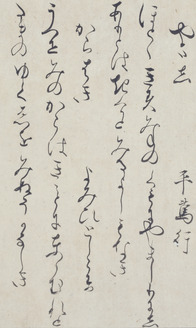 やまし　平篤行
ほとゝきすみねのくもにやましりにし
ありとはきけとみるよしもなき
からはき　よみひとしらす
うつせみのからはきことにとゝむれと
たまのゆくへをみぬそかなしき